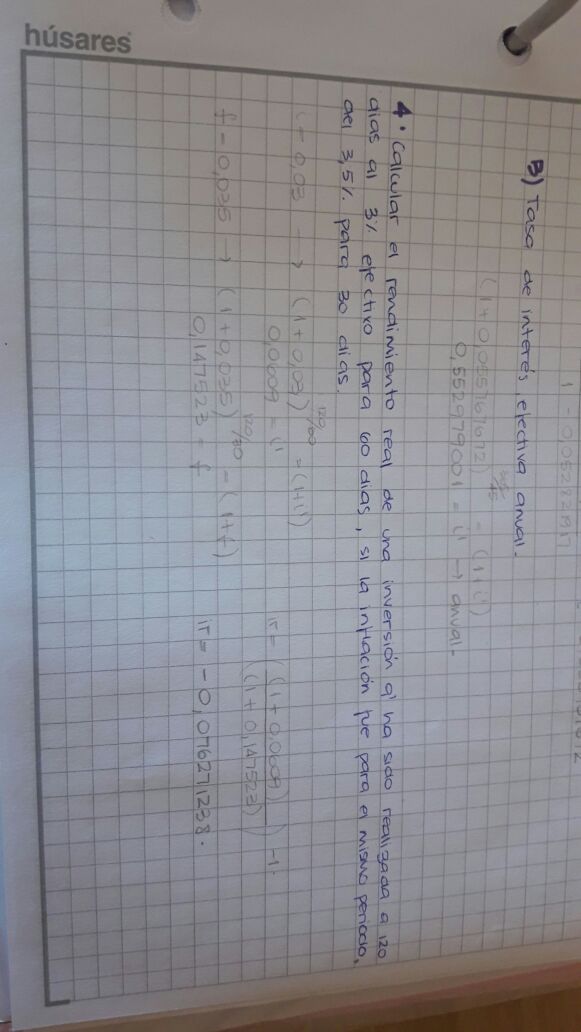 húsares
1 - 0,05282917
B) Tasa de interés efectiva anual.
(1 + 0,055767672)^365/45 = (1+i')
0,552979001 = i' → anual.
4. Calcular el rendimiento real de una inversión q' ha sido realizada a 120
días al 3% efectivo para 60 días, si la inflación fue para el mismo periodo,
del 3,5% para 30 días.
i = 0,03 → (1 + 0,03)^120/60 = (1+i')
0,0609 = i'
f = 0,035 → (1 + 0,035)^120/30 = (1+f)
0,147523 = f
ir = ((1 + 0,0609) / (1 + 0,147523)) -1.
ir = -0,076271238.